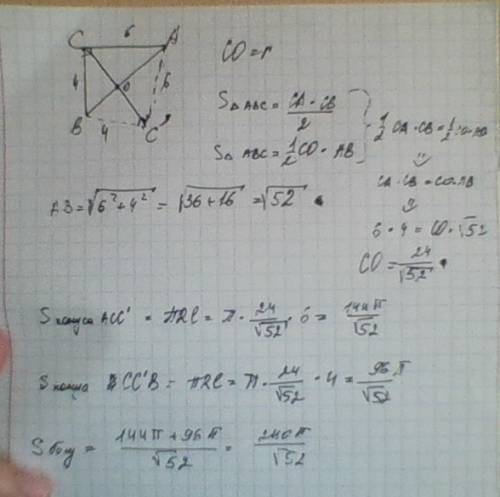 6
C A
CO = r
4 O 6
B 4 C'
S△ABC = CA · CB / 2
S△ABC = 1/2 CO · AB
1/2 CA · CB = 1/2 CO · AB
CA · CB = CO · AB
6 · 4 = CO · √52
CO = 24/√52
AB = √6² + 4² = √36 + 16 = √52
S конуса ACC' = πRL = π · 24/√52 · 6 = 144π/√52
S конуса CC'B = πRL = π · 24/√52 · 4 = 96π/√52
S бок = 144π + 96π / √52 = 240π/√52